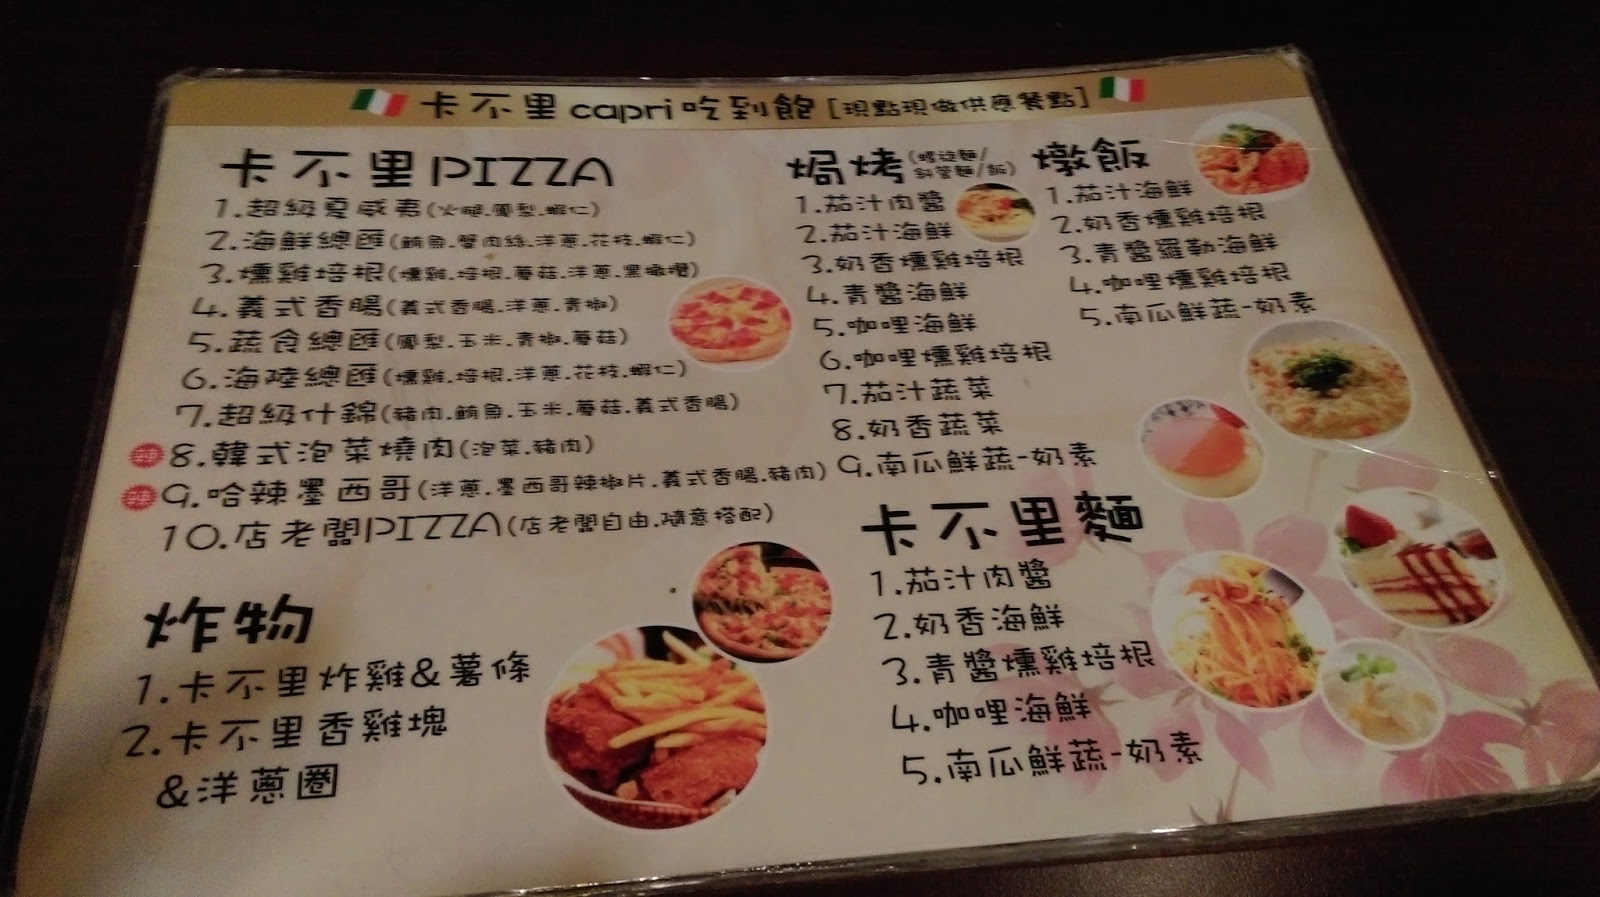 卡不里capri吃到飽[現點現做供應餐點]
卡不里PIZZA
1.超級夏威夷(火腿.鳳梨.蝦仁)
2.海鮮總匯(鮪魚.蟹肉絲.洋蔥.花枝.蝦仁)
3.燻雞培根(燻雞.培根.蘑菇.洋蔥.黑橄欖)
4.義式香腸(義式香腸.洋蔥.青椒)
5.蔬食總匯(鳳梨.玉米.青椒.蘑菇)
6.海陸總匯(燻雞.培根.洋蔥.花枝.蝦仁)
7.超級什錦(豬肉.鮪魚.玉米.蘑菇.義式香腸)
辣 8.韓式泡菜燒肉(泡菜.豬肉)
辣 9.哈辣墨西哥(洋蔥.墨西哥辣椒片.義式香腸.豬肉)
10.店老闆PIZZA(店老闆自由.隨意搭配)
炸物
1.卡不里炸雞&薯條
2.卡不里香雞塊
&洋蔥圈
焗烤(螺旋麵/
斜管麵/飯)
1.茄汁肉醬
2.茄汁海鮮
3.奶香燻雞培根
4.青醬海鮮
5.咖哩海鮮
6.咖哩燻雞培根
7.茄汁蔬菜
8.奶香蔬菜
9.南瓜鮮蔬-奶素
燉飯
1.茄汁海鮮
2.奶香燻雞培根
3.青醬羅勒海鮮
4.咖哩燻雞培根
5.南瓜鮮蔬-奶素
卡不里麵
1.茄汁肉醬
2.奶香海鮮
3.青醬燻雞培根
4.咖哩海鮮
5.南瓜鮮蔬-奶素